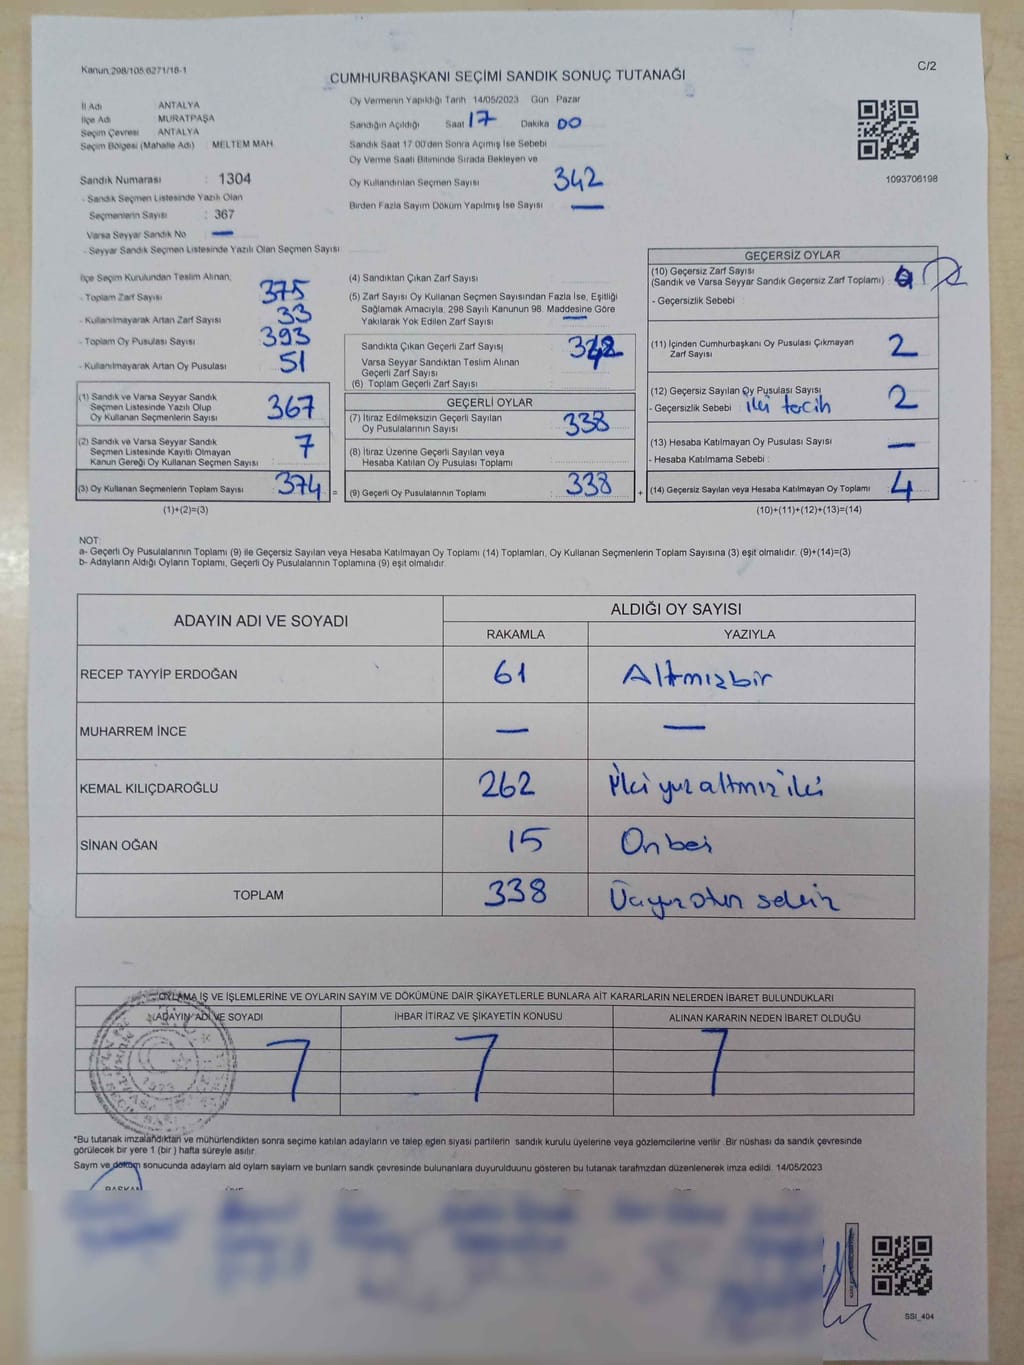 Kanun:298/105.6271/18-1
C/2
CUMHURBAŞKANI SEÇİMİ SANDIK SONUÇ TUTANAĞI
İl Adı ANTALYA
İlçe Adı MURATPAŞA
Seçim Çevresi ANTALYA
Seçim Bölgesi (Mahalle Adı) MELTEM MAH
Sandık Numarası : 1304
- Sandık Seçmen Listesinde Yazılı Olan
Seçmenlerin Sayısı : 367
Varsa Seyyar Sandık No : —
- Seyyar Sandık Seçmen Listesinde Yazılı Olan Seçmen Sayısı
Oy Vermenin Yapıldığı Tarih 14/05/2023 Gün Pazar
Sandığın Açıldığı Saat 17 Dakika 00
Sandık Saat 17 00'den Sonra Açımış İse Sebebi
Oy Verme Saati Bitiminde Sırada Bekleyen ve
Oy Kullandırılan Seçmen Sayısı 342
Birden Fazla Sayım Döküm Yapılmış İse Sayısı —
1093706198
İlçe Seçim Kurulundan Teslim Alınan;
- Toplam Zarf Sayısı 375
- Kullanılmayarak Artan Zarf Sayısı 33
- Toplam Oy Pusulası Sayısı 393
- Kullanılmayarak Artan Oy Pusulası 51
(1) Sandık ve Varsa Seyyar Sandık
Seçmen Listesinde Yazılı Olup
Oy Kullanan Seçmenlerin Sayısı 367
(2) Sandık ve Varsa Seyyar Sandık
Seçmen Listesinde Kayıtlı Olmayan
Kanun Gereği Oy Kullanan Seçmen Sayısı 7
(3) Oy Kullanan Seçmenlerin Toplam Sayısı 374
(1)+(2)=(3)
=
(4) Sandıktan Çıkan Zarf Sayısı
(5) Zarf Sayısı Oy Kullanan Seçmen Sayısından Fazla İse, Eşitliği
Sağlamak Amacıyla, 298 Sayılı Kanunun 98. Maddesine Göre
Yakılarak Yok Edilen Zarf Sayısı —
Sandıkta Çıkan Geçerli Zarf Sayısı 342
Varsa Seyyar Sandıktan Teslim Alınan
Geçerli Zarf Sayısı
(6) Toplam Geçerli Zarf Sayısı
GEÇERLİ OYLAR
(7) İtiraz Edilmeksizin Geçerli Sayılan
Oy Pusulalarının Sayısı 338
(8) İtiraz Üzerine Geçerli Sayılan veya
Hesaba Katılan Oy Pusulası Toplamı
(9) Geçerli Oy Pusulalarının Toplamı 338
+
GEÇERSİZ OYLAR
(10) Geçersiz Zarf Sayısı
(Sandık ve Varsa Seyyar Sandık Geçersiz Zarf Toplamı)
- Geçersizlik Sebebi
(11) İçinden Cumhurbaşkanı Oy Pusulası Çıkmayan
Zarf Sayısı 2
(12) Geçersiz Sayılan Oy Pusulası Sayısı 2
- Geçersizlik Sebebi : iki tercih
(13) Hesaba Katılmayan Oy Pusulası Sayısı —
- Hesaba Katılmama Sebebi :
(14) Geçersiz Sayılan veya Hesaba Katılmayan Oy Toplamı 4
(10)+(11)+(12)+(13)=(14)
NOT:
a- Geçerli Oy Pusulalarının Toplamı (9) ile Geçersiz Sayılan veya Hesaba Katılmayan Oy Toplamı (14) Toplamları, Oy Kullanan Seçmenlerin Toplam Sayısına (3) eşit olmalıdır. (9)+(14)=(3)
b- Adayların Aldığı Oyların Toplamı, Geçerli Oy Pusulalarının Toplamına (9) eşit olmalıdır.
ADAYIN ADI VE SOYADI
ALDIĞI OY SAYISI
RAKAMLA YAZIYLA
RECEP TAYYİP ERDOĞAN 61 Altmışbir
MUHARREM İNCE — —
KEMAL KILIÇDAROĞLU 262 İki yüz altmış iki
SİNAN OĞAN 15 Onbeş
TOPLAM 338 Üçyüz otuz sekiz
OYLAMA İŞ VE İŞLEMLERİNE VE OYLARIN SAYIM VE DÖKÜMÜNE DAİR ŞİKAYETLERLE BUNLARA AİT KARARLARIN NELERDEN İBARET BULUNDUKLARI
ADAYIN ADI VE SOYADI İHBAR İTİRAZ VE ŞİKAYETİN KONUSU ALINAN KARARIN NEDEN İBARET OLDUĞU
*Bu tutanak imzalandıktan ve mühürlendikten sonra seçime katılan adayların ve talep eden siyasi partilerin sandık kurulu üyelerine veya gözlemcilerine verilir. Bir nüshası da sandık çevresinde
görülecek bir yere 1 (bir ) hafta süreyle asılır.
Sayım ve döküm sonucunda adaylarn ald oylarn saylarn ve bunlarn sandk çevresinde bulunanlara duyurulduunu gösteren bu tutanak tarafmzdan düzenlenerek imza edildi. 14/05/2023
BAŞKAN
SSI_404